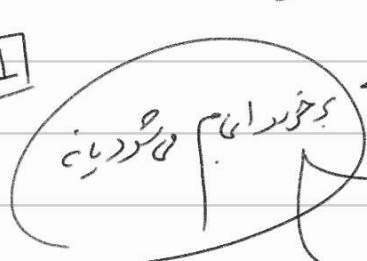 بر خرید انجام می شود یا نه
1